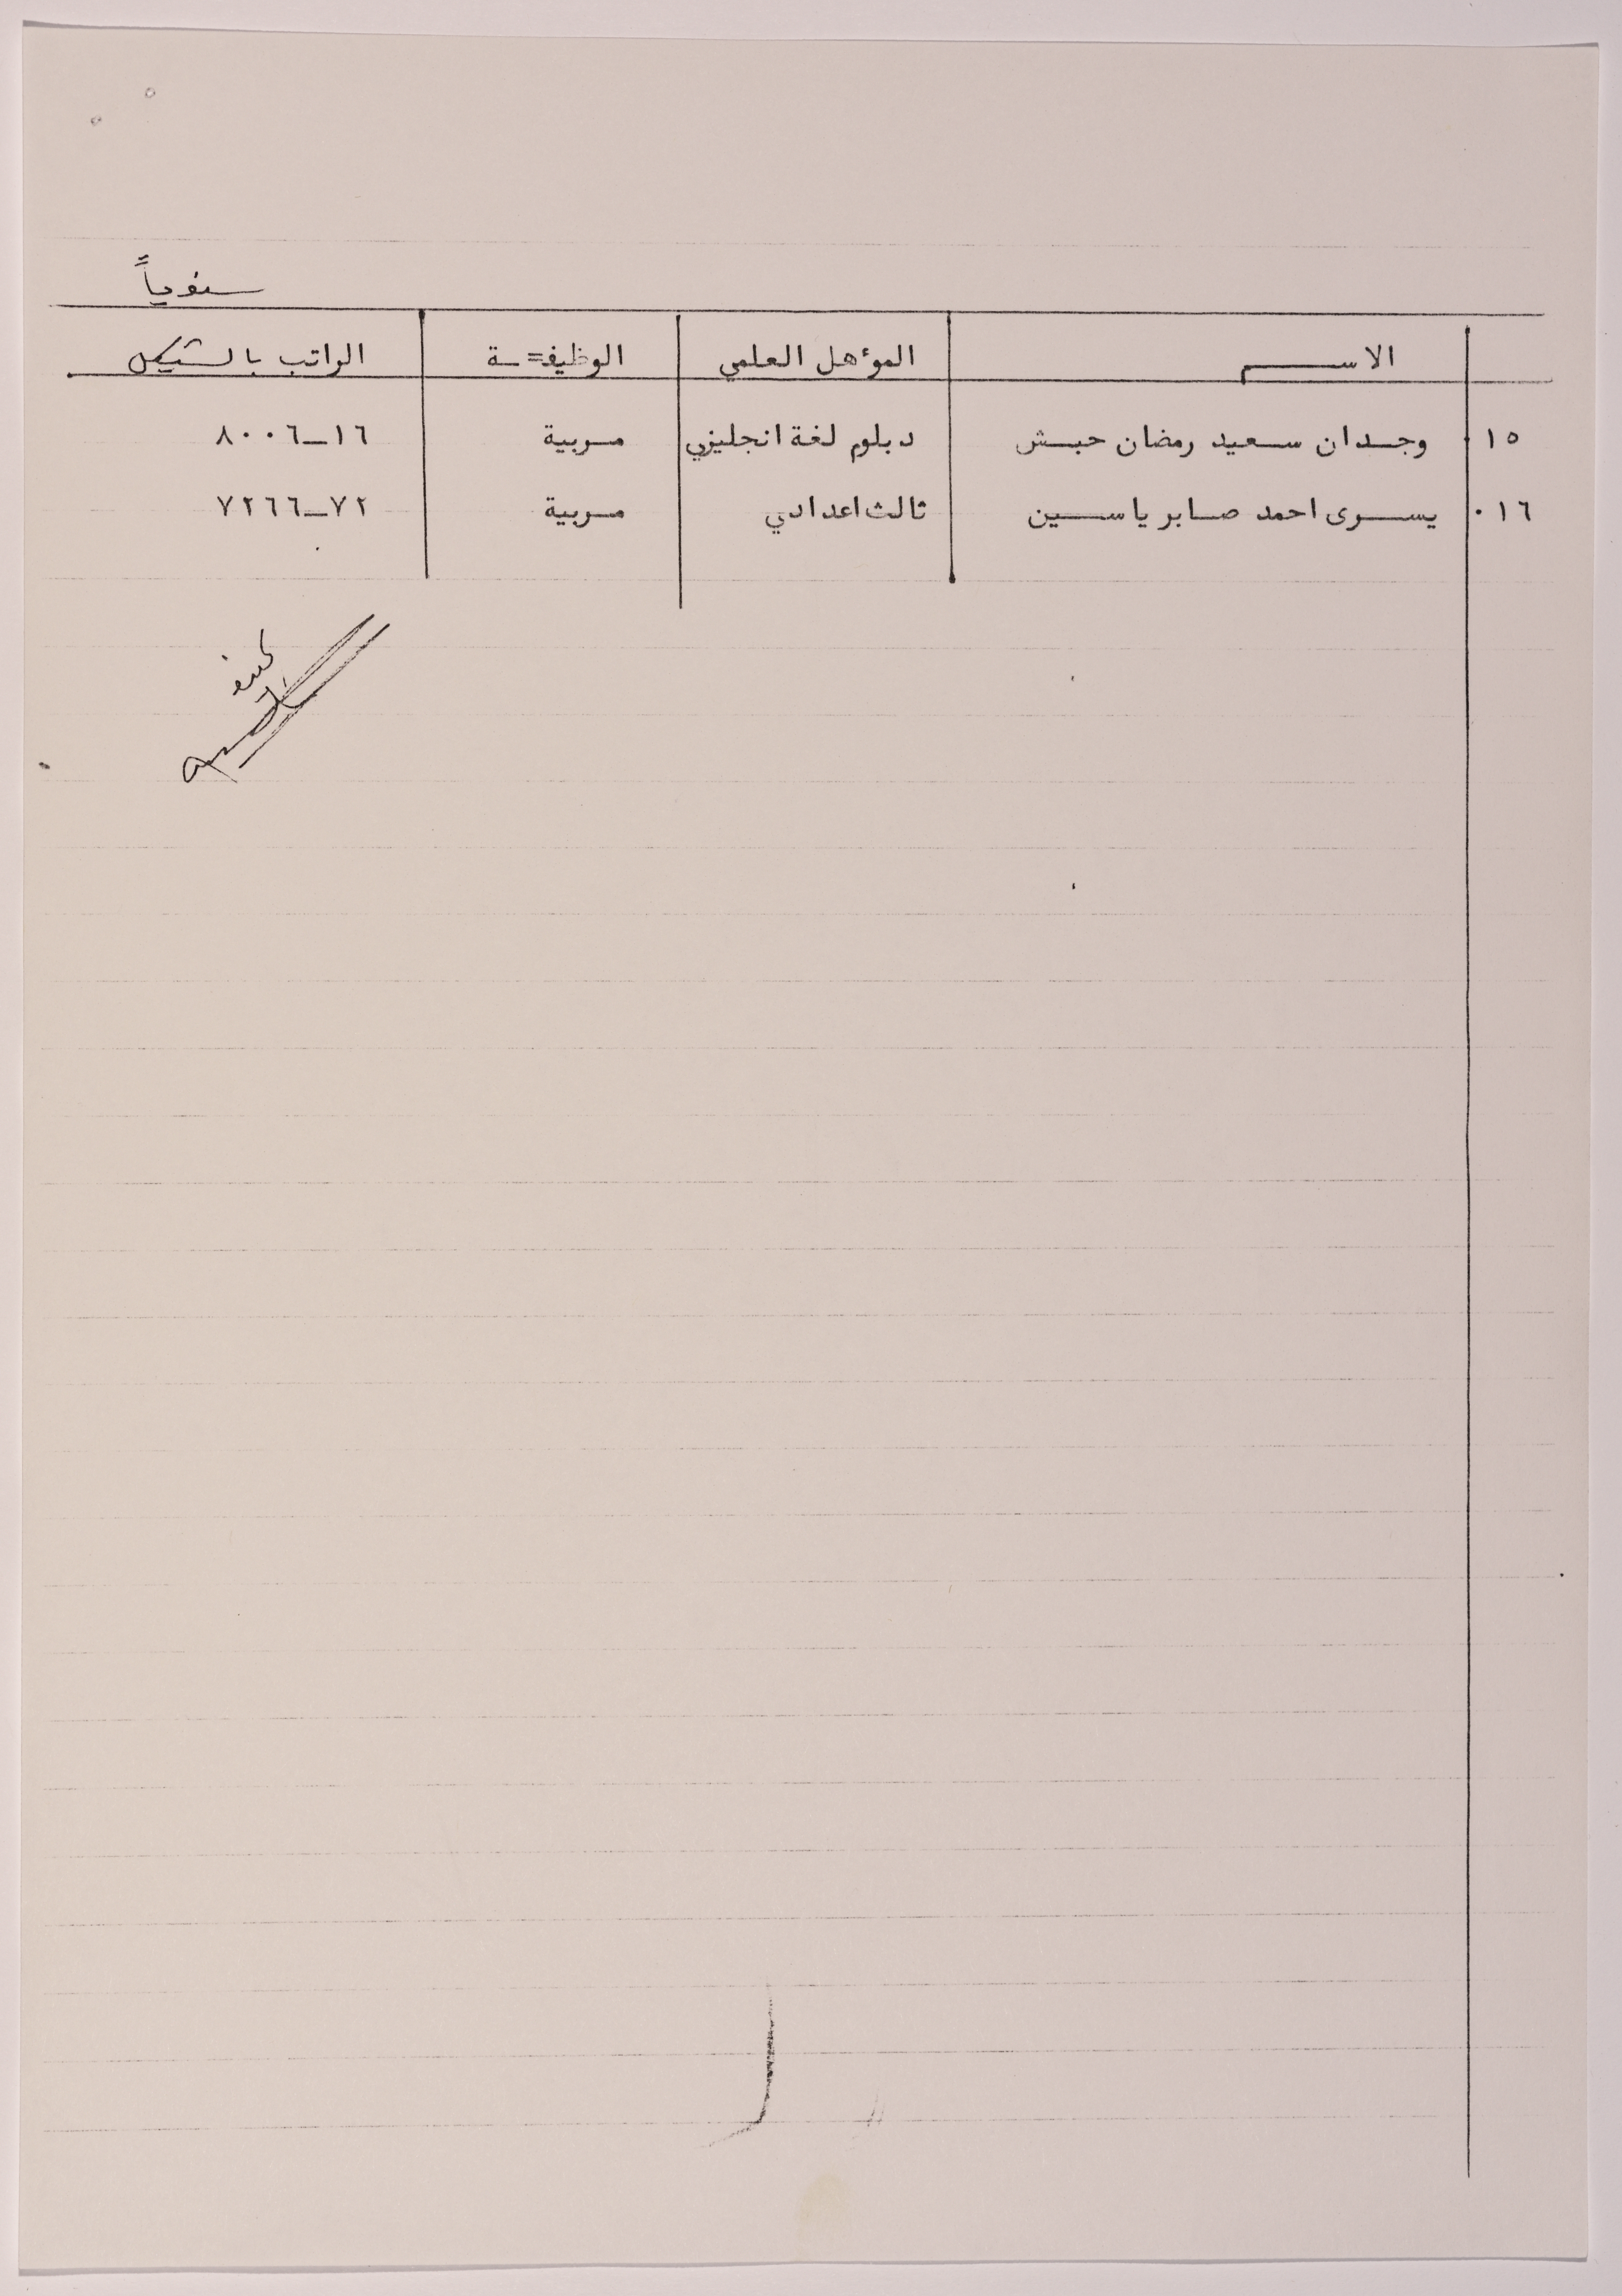 سنوياً
الاســـم المؤهل العلمي الوظيفـة الراتب بالشيكل
١٥ وجـدان سـعيد رمضان حبـش دبلوم لغة انجليزي مـربية ١٦ــ٨٠٠٦
١٦٠ يســرى احمد صـابر ياســين ثالث اعدادي مـربية ٧٢ــ٧٢٦٦